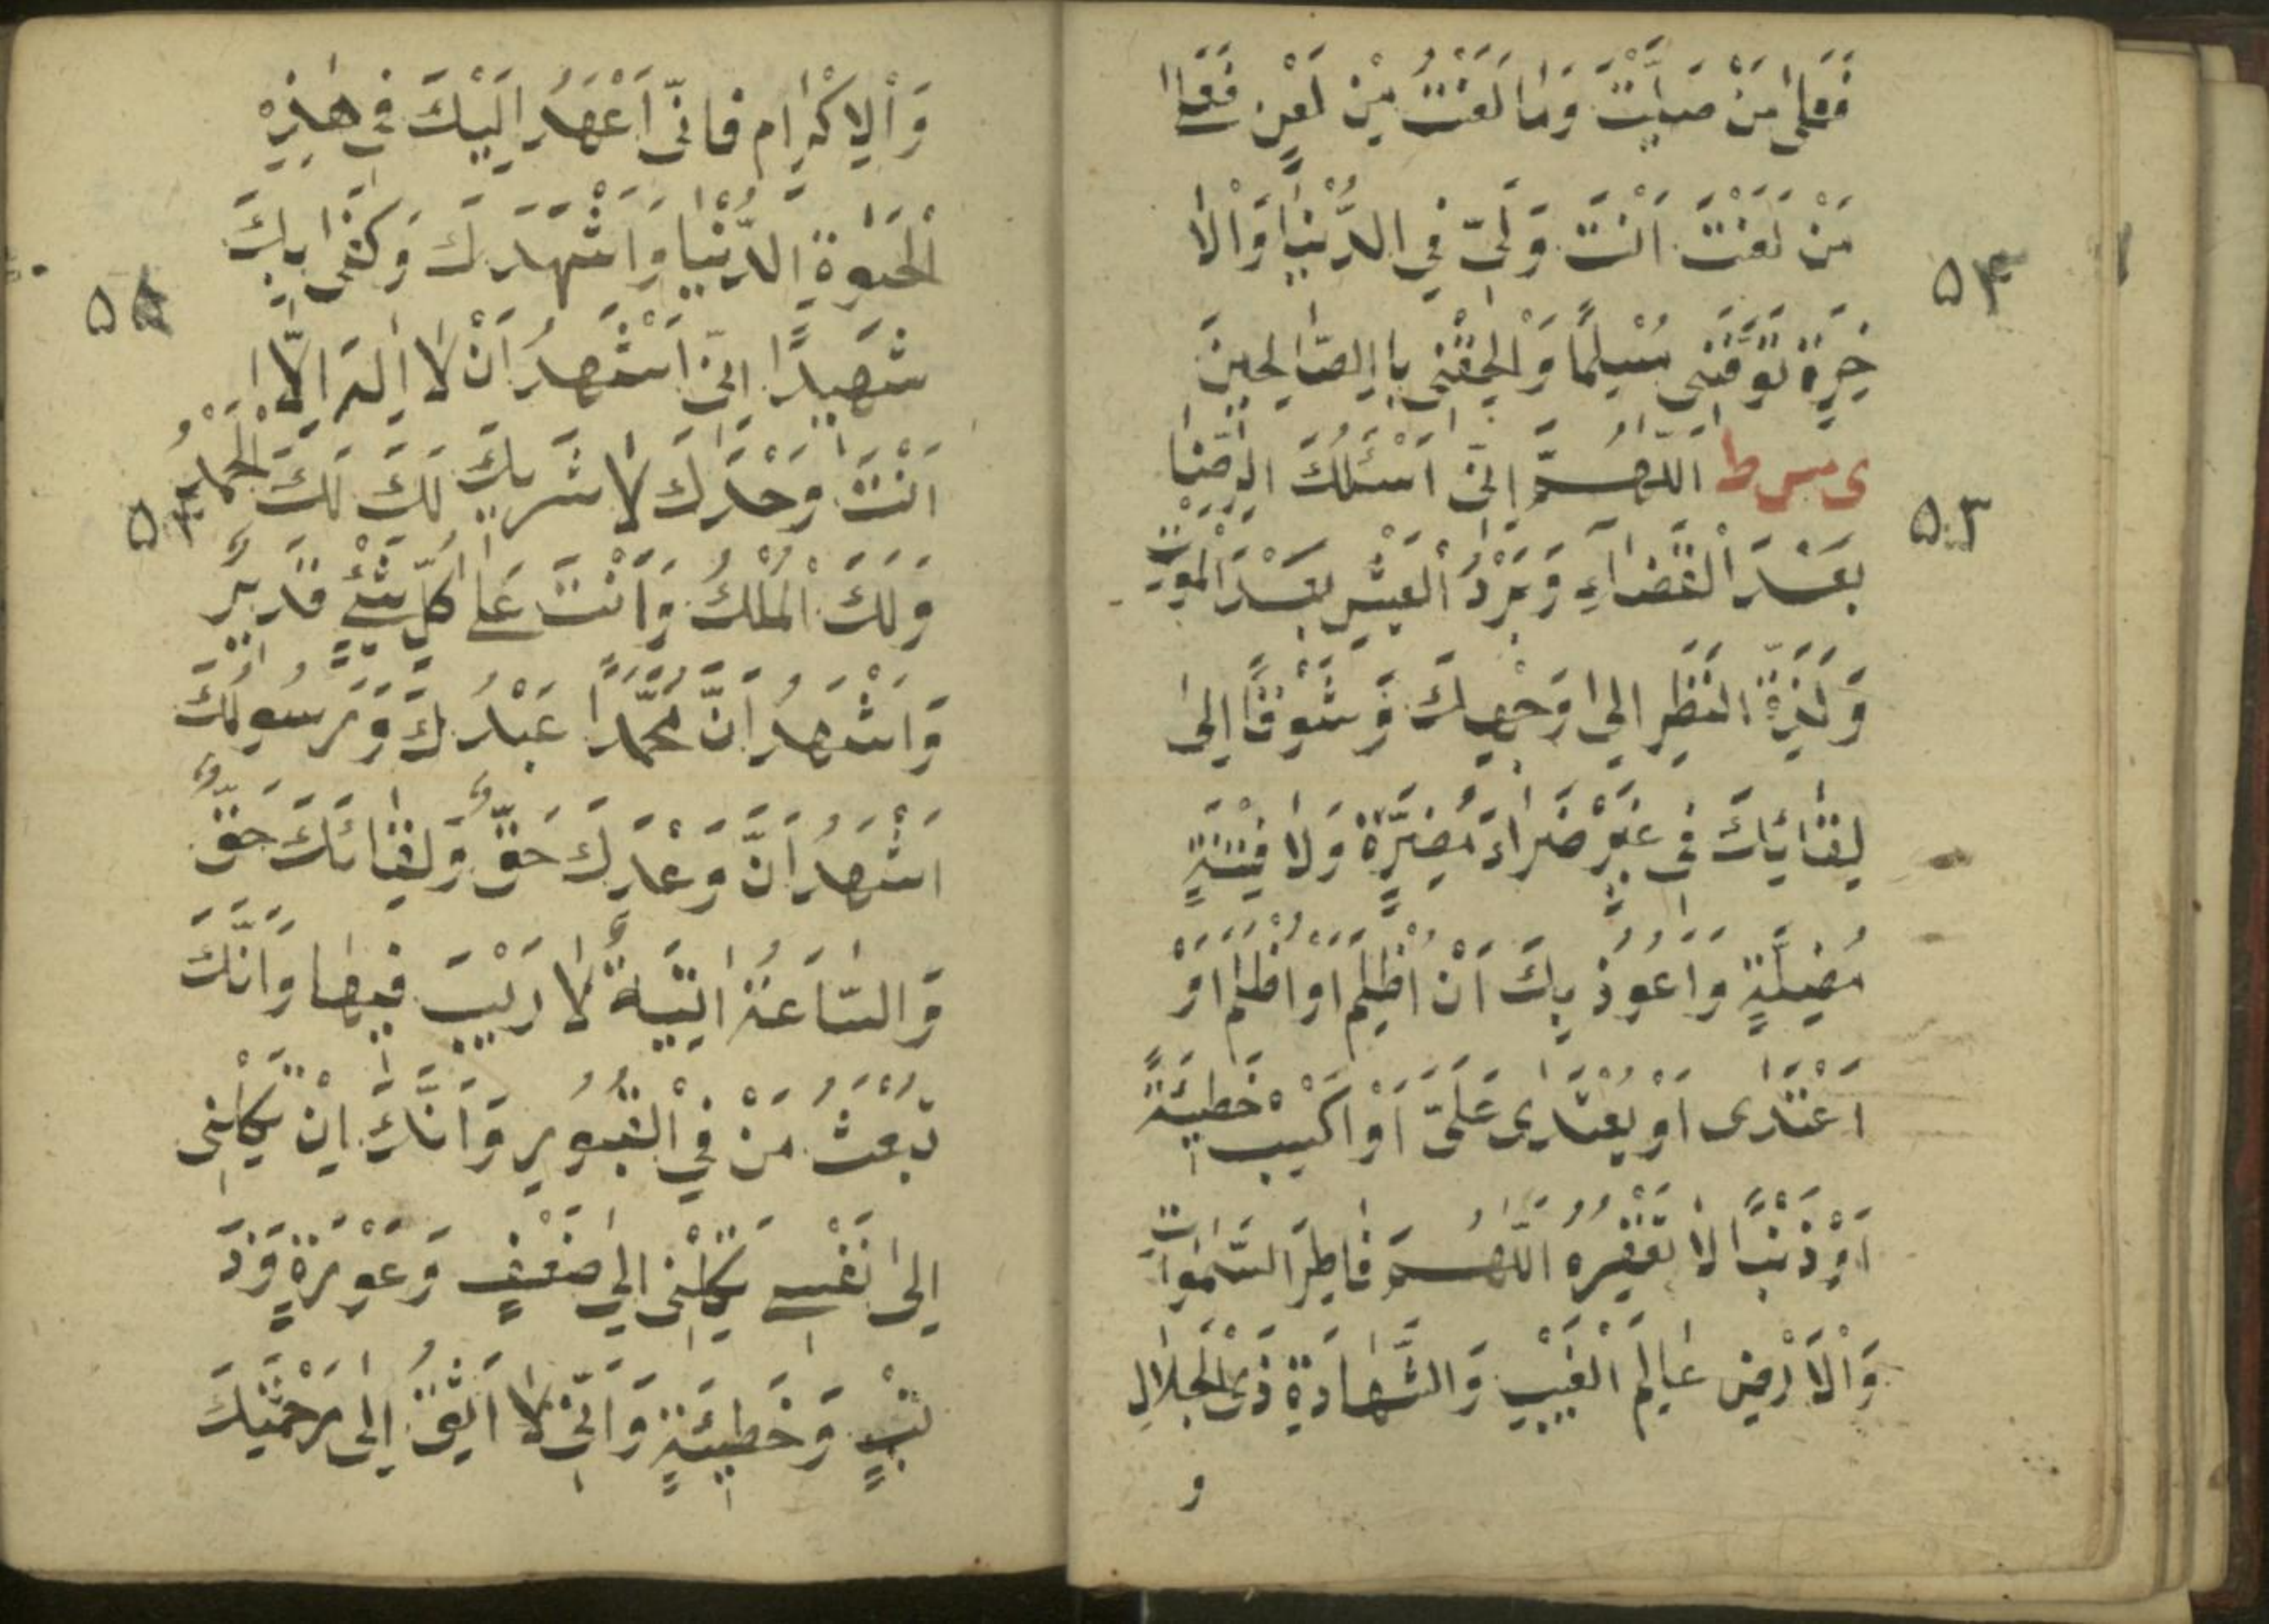 فَعَلىٰ مَنْ صَلَّيْتَ وَمٰا لَعَنْتُ مِنْ لَعْنٍ فَعَلىٰ
مَنْ لَعَنْتَ اَنْتَ وَلِیّ فِي الدُّنْيٰا وَالْاٰ
خِرَةِ تَوَفَّنِى مُسْلِمًا وَاَلْحِقْنِى بِاالصّٰالِحِينَ
ى مس ط اَللّٰهُمَّ اِنّى اَسْئَلُكَ الرِّضٰا
بَعْدَ الْقَضٰاءِ وَبَرْدُ الْعَيْشِ بَعْدَ الْمَوْتِ
وَلَذَّةَ النَّظَرِ اِلىٰ وَجْهِكَ وَشَوْقًا اِلىٰ
لِقٰائِكَ فِى غَيْرِ ضَرٰاءَ مُضِرَّةٍ وَلٰا فِتْنَةٍ
مُضِلَّةٍ وَاَعُوذُ بِكَ اَنْ اَظْلِمَ اَوْ اُظْلَمَ اَوْ
اَعْتَدٰى اَوْ يُعْتَدٰى عَلَىَّ اَوْ اَكْسِبَ خَطِيئَةً
اَوْ ذَنْبًا لٰا تَغْفِرُهُ اَللّٰهُمَّ فٰاطِرَ السَّمٰوٰاتِ
وَالْاَرْضِ عٰالِمَ الْغَيْبِ وَالشَّهٰادَةِ ذَى الْجَلٰالِ
و
۵۴
۵۳
وَالْاِكْرٰامِ فَاِنّى اَعْهَدُ اِلَيْكَ فِى هٰذِهِ
الْحَيٰوةِ الدُّنْيٰا وَاَشْهَدَكَ وَكَفٰى بِكَ
شَهِيدًا اِنّى اَشْهَدُ اَنْ لٰا اِلٰهَ اِلّٰا
اَنْتَ وَحْدَكَ لٰا شَرِيكَ لَكَ لَكَ الْحَمْدُ
وَلَكَ الْمُلْكُ وَاَنْتَ عَلىٰ كُلّ شَيْءٍ قَدِيرٌ
وَاَشْهَدُ اَنَّ مُحَمَّدًا عَبْدُكَ وَرَسُولُكَ
اَشْهَدُ اَنَّ وَعْدَكَ حَقٌّ وَلِقٰائَكَ حَقٌّ
وَالسّٰاعَةُ اٰتِيَةٌ لٰا رَيْبَ فِيهٰا وَاَنَّكَ
تَبْعَثُ مَنْ فِي الْقُبُورِ وَاَنَّكَ اِنْ تَكِلْنِى
اِلىٰ نَفْسِى تَكِلْنِى اِلىٰ ضَعْفٍ وَعَوْرَةٍ وَذَ
نْبٍ وَخَطِيئَةٍ وَاَنّى لٰا اَثِقُ اِلٰى رَحْمَتِكَ